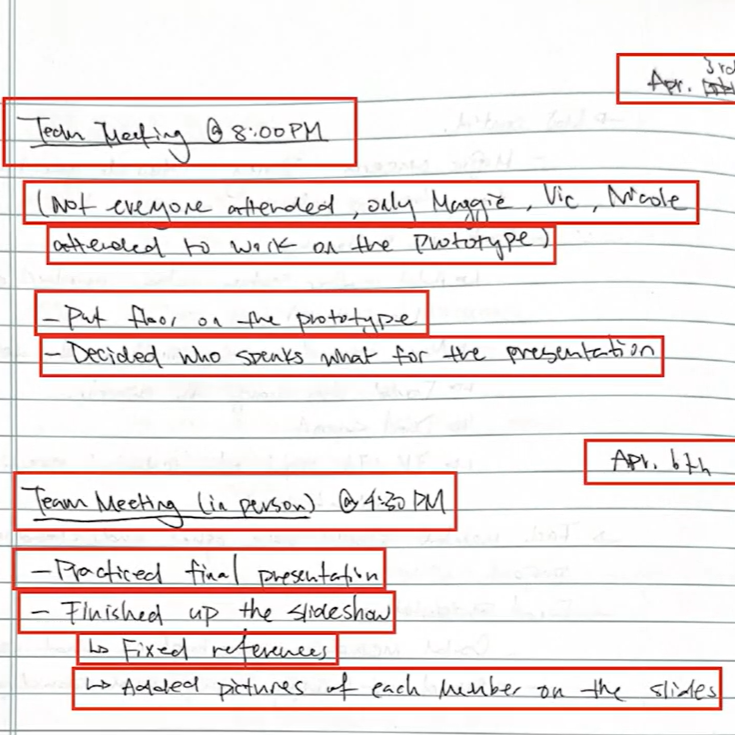 Apr. 3rd
Team Meeting @ 8:00 PM
(Not everyone attended, only Maggie, Vic, Nicole
attended to work on the prototype)
- Put floor on the prototype
- Decided who speaks what for the presentation
Apr. 6th
Team Meeting (in person) @ 4:30 PM
- Practiced final presentation
- FInished up the slideshow
↳ Fixed references
↳ Added pictures of each member on the slides